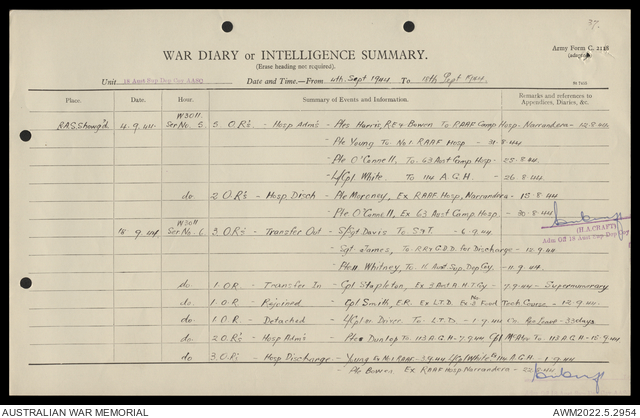 37.
Army Form C. 2118
WAR DIARY or INTELLIGENCE SUMMARY.
(Erase heading not required).
Unit 18 Aust Sup Dep Coy AASC Date and Time.—From 4th Sept 1944 To 18th Sept 1944.
Place. Date. Hour. Summary of Events and Information. Remarks and references to Appendices, Diaries, &c.
R.A.S. Showg'd 4.9.44. W3011 Ser No. 5. 5. O.R's. - Hosp Adm's - Ptes Harris, R.E & Bowen To RAAF Camp Hosp. Narrandera - 12.8.44.
- Pte Young To No 1 RAAF Hosp - 31.8.44
- Pte O'Connell, To 63 Aust Camp Hosp. - 25.8.44.
- L/Cpl White. To 114 A.G.H. - 26.8.44
do 2 O.R's - Hosp Disch - Pte Moroney, Ex RAAF Hosp, Narrandera - 15.8.44
Pte O'Connell, Ex 63 Aust Camp Hosp. - 30.8.44
18.9.44 W3011 Ser No. 6. 3. O.R's - Transfer Out - S/Sgt Davis To S & T. - 6.9.44
(H.A. CRAFT)
Adm Off 18 Aust Sup Dep Coy
- Sgt James, To RR & G.D.D. for Discharge - 12.9.44.
- Pte Whitney, To 15 Aust Sup. Dep Coy. - 11.9.44.
do. 1. O.R. - Transfer In - Cpl Stapleton, Ex 3 Aust A.H.T. Coy - 7.9.44 - Supernumerary
do. 1. O.R. - Rejoined - Cpl Smith, E.R. Ex L.T.D. Ex No 3 Food Tech. Course - 12.9.44.
do. 1 O.R. - Detached - L/Cpl Driver To L.T.D. - 1.9.44 Leave - 33 days
do. 2 O.R's - Hosp Adm's - Pte Dunlop To 113 A.G.H - 7.9.44 Cpl To 113 A.G.H - 15.9.44
do 3. O.R's - Hosp Discharge - Young Ex No 1 RAAF - 3.9.44 L/Cpl White Ex 114 A.G.H. 1.9.44
Pte Bowen Ex RAAF Hosp Narrandera -
AUSTRALIAN WAR MEMORIAL AWM2022.5.2954